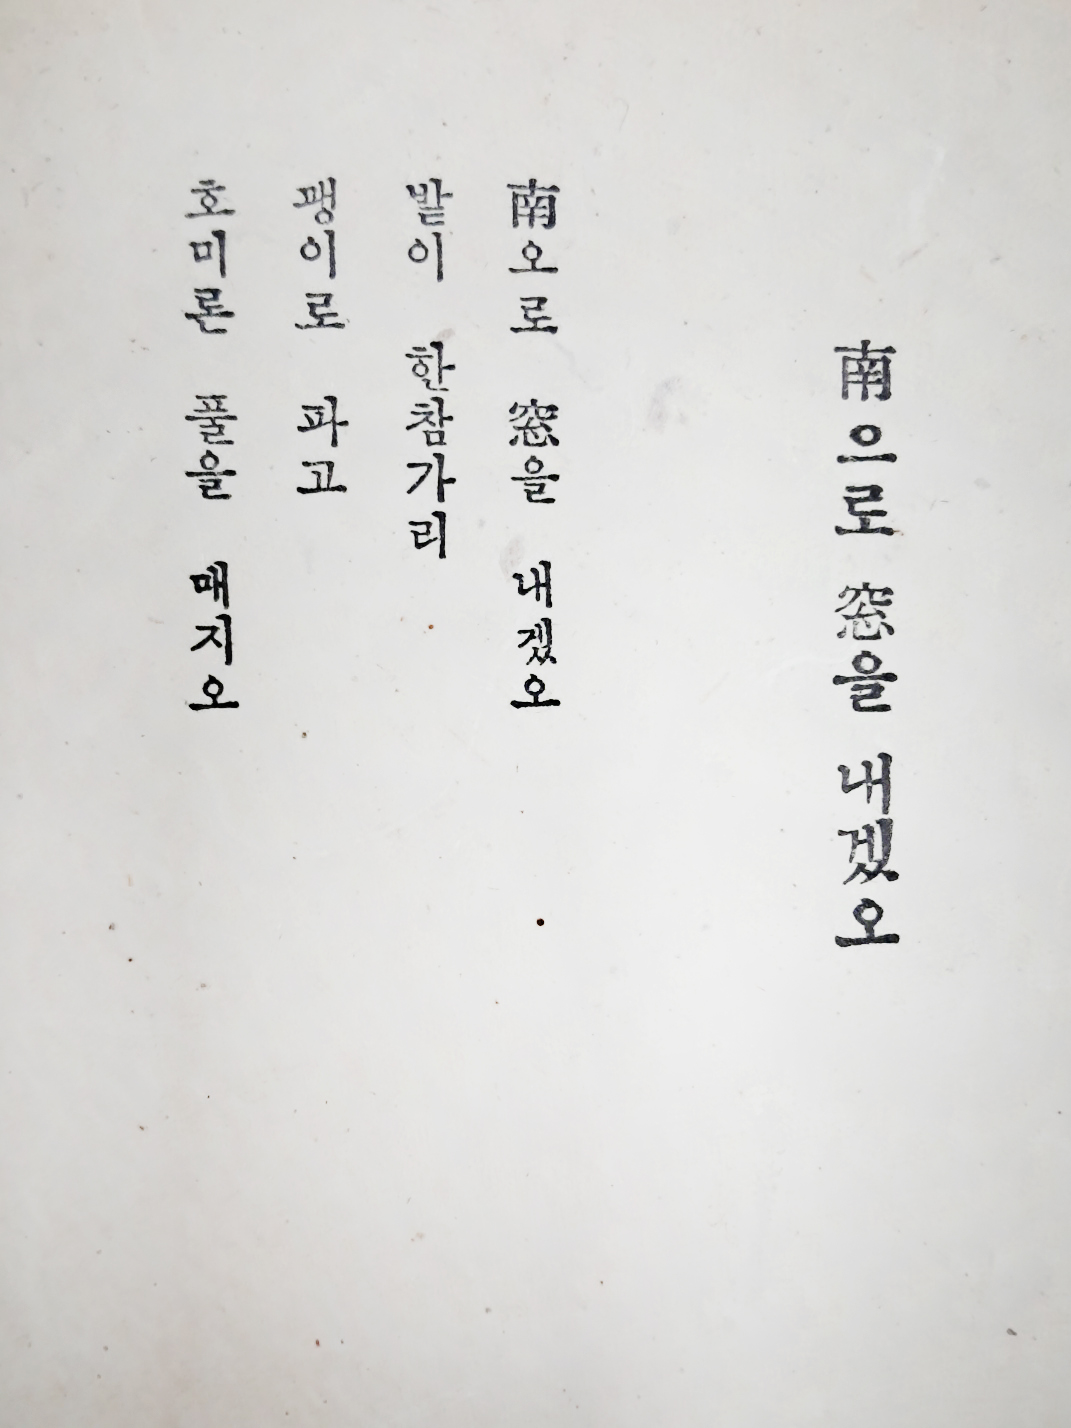 南으로 窓을 내겠오
南오로 窓을 내겠오
밭이 한참가리
괭이로 파고
호미론 풀을 매지오